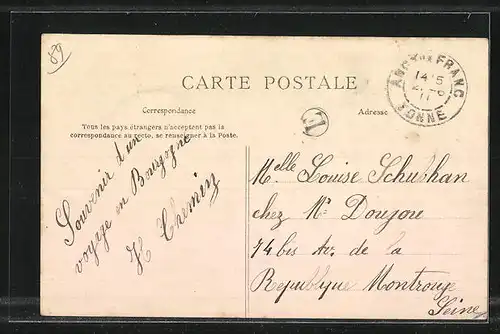 89
CARTE POSTALE
Correspondance
Adresse
Tous les pays étrangers n'acceptent pas la
correspondance au recto, se renseigner à la Poste.
ANCY LE FRANC
14*5
11
YONNE
Souvenir d'un
voyage en Bourgogne
Chemin
Melle Louise Schubhan
chez Mr Doujou
74 bis Av. de la
Republique Montrouge
Seine